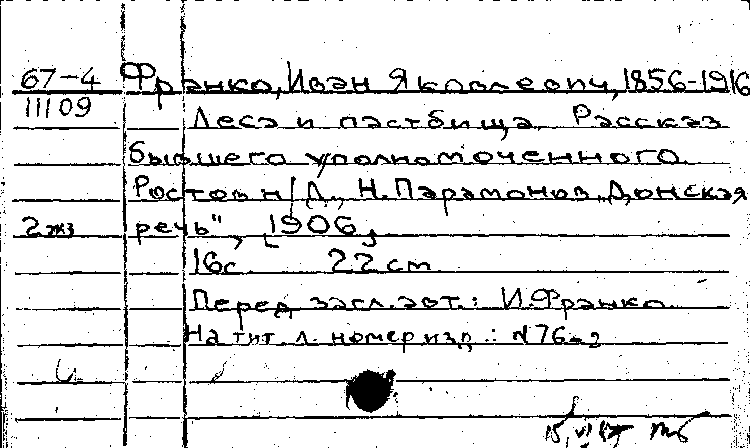 67-4 Франко, Иван Яковлевич, 1856-1916
11109 Леса и пастбища. Рассказ
бывшего уполномоченного
Ростов н/Д., Н. Парамонов „Донская
2 экз речь", [1906]
16с. 22 cm
Перед загл. авт.: И. Франко
На тит. л. номер изд.: N 76-2
15,VI